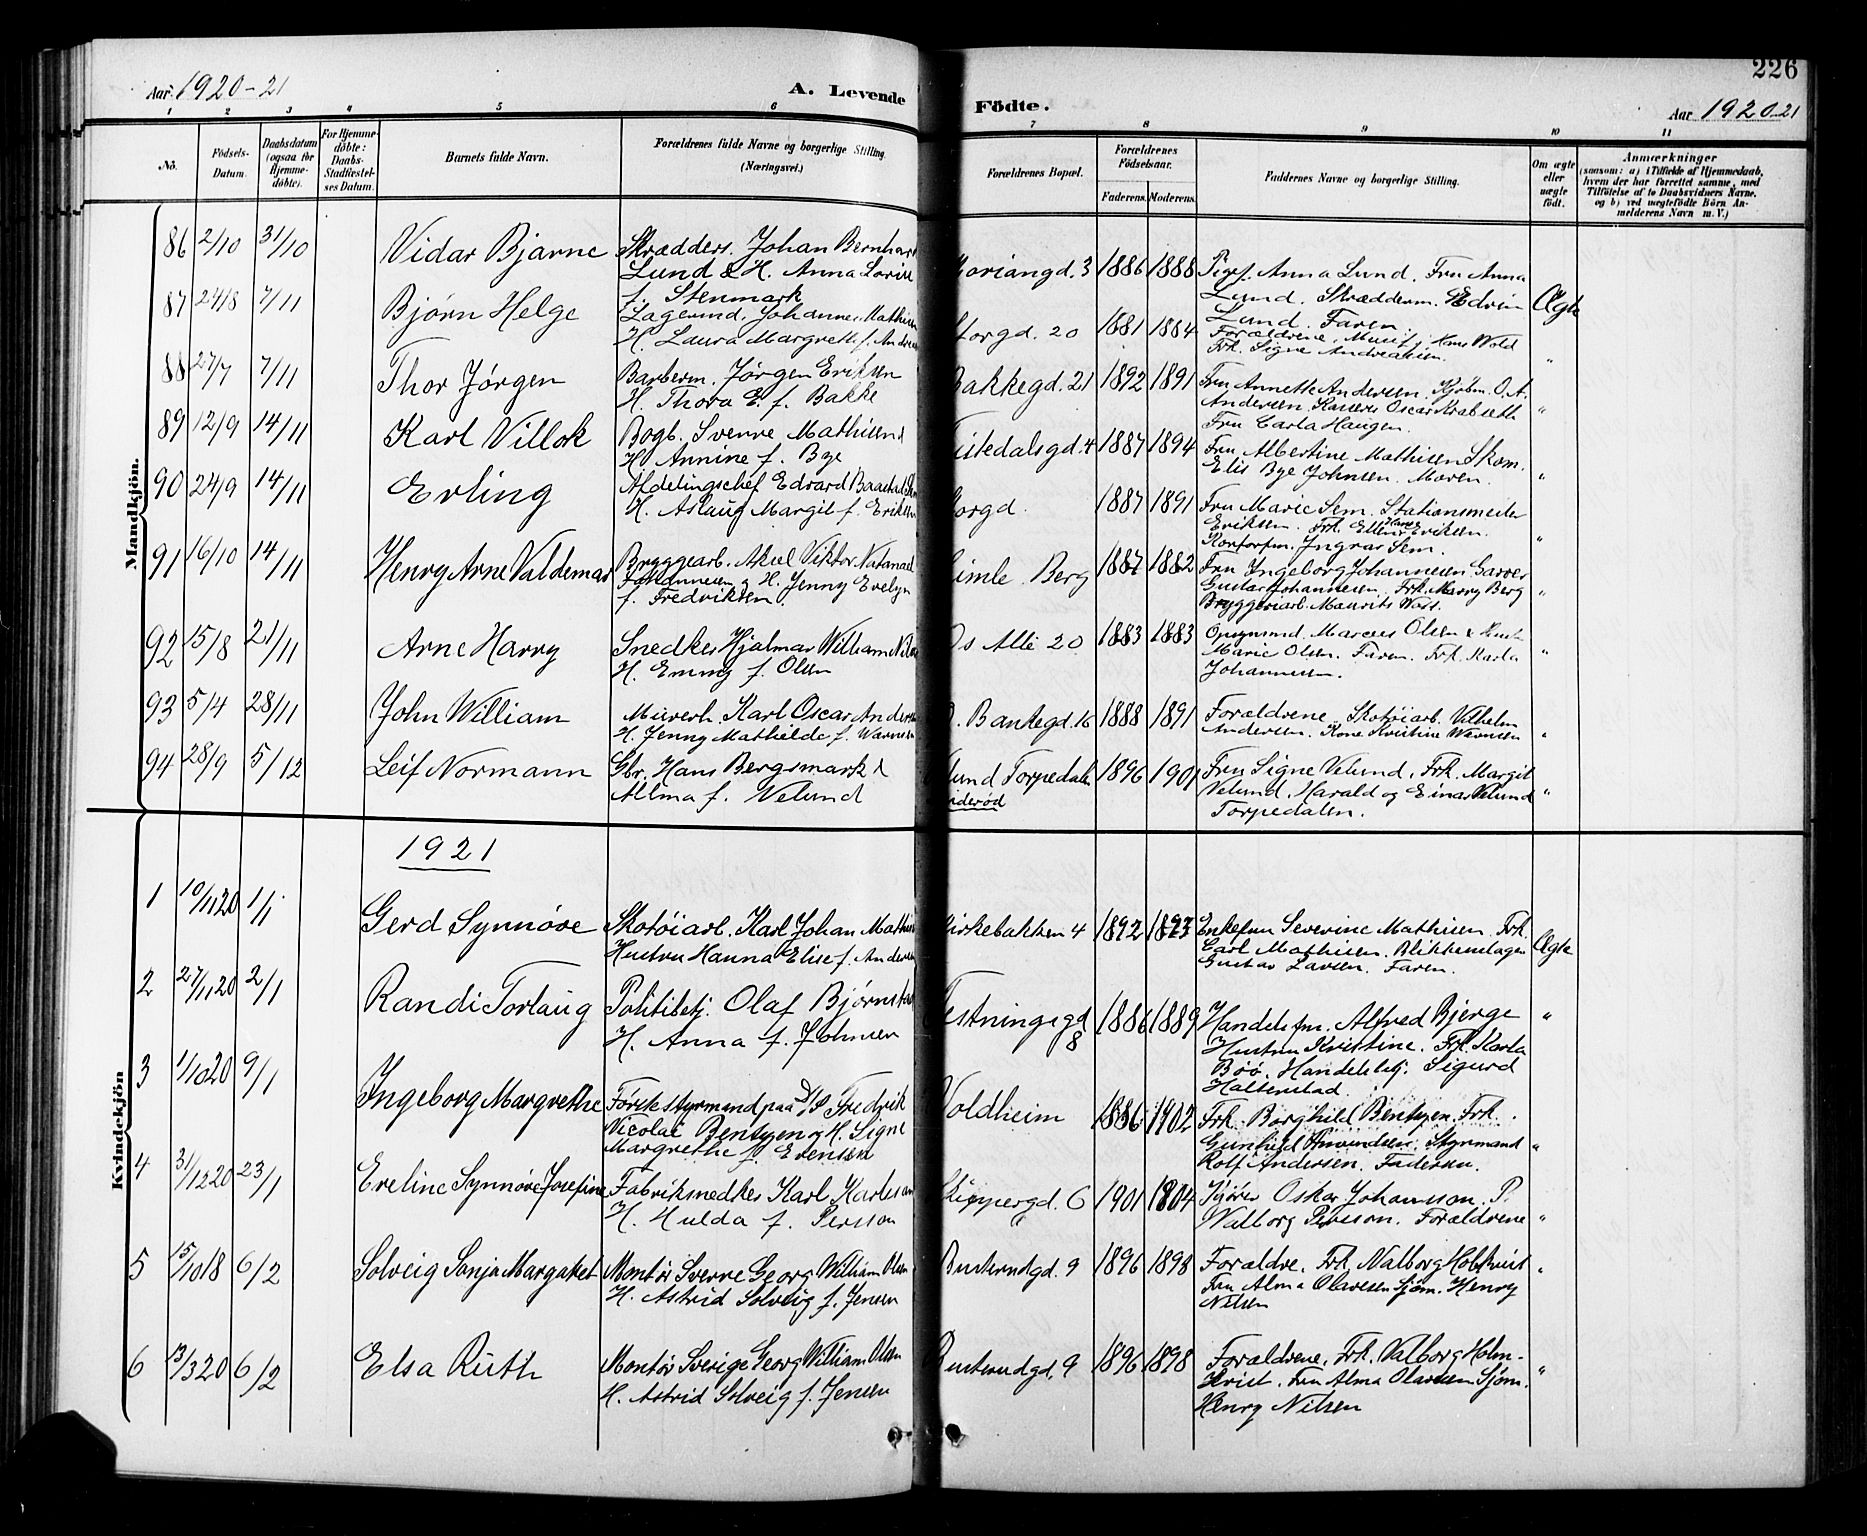 226
Aar 1920-21
A. Levende
Födte.
Aar 1920-21
1 2 3 4 5 6 7 8 9 10 11
No.
Födsels-Datum.
Daabsdatum (ogsaa for Hjemme-döbte).
For Hjemme-döbte: Daabs-Stadfæstel-ses Datum.
Barnets fulde Navn.
Forældrenes fulde Navne og borgerlige Stilling.
(Næringsvei.)
Forældrenes Bopæl.
Forældrenes Födselsaar.
Faderens. Moderens.
Faddernes Navne og borgerlige Stilling.
Om ægte eller uægte födt.
Anmærkninger
(saasom: a) i Tilfælde af Hjemmedaab,
hvem der har forrettet samme, med
Tilföielse af to Daabsvidners Navne,
og b) ved uægtefödte Börn An-
melderens Navn m. V.)
Mandkjön.
86 2/10 31/10 Vidar Bjarne Skrædders. Johan Bernhard
Lund & H. Anna
f. Stenmark
3 1886 1888 Pigef. Anna Lund. Fru Anna
Lund. Skrædderm. Edvin
Lund. Faren. Ægte
87 24/8 7/11 Bjørn Helge Johannes Mathisen
H. Laura Margrethe f.
Storgd. 20 1881 1884 Forældrene, Hans Wold
Frk. Signe Andreassen. "
88 27/7 7/11 Thor Jørgen Barberm. Jørgen Eriksen
H. Thora E. f. Bakke
Bakkegd. 21 1892 1891 Fru Annette Andersen. Kjøbm. O. A.
Andersen. Kasserer Oscar
Fru Carla Haugen. "
89 12/9 14/11 Karl Villok Bogb. Sverre Mathisen
H. Annine f. Bye
Tistedalsgd. 4 1887 1894 Fru Albertine Mathisen Skom.
Elis Bye Johnsen. Moren. "
90 24/9 14/11 Erling Afdelingschef Edvard Baastad
H. Aslaug Margit f. Eriksen
Storgd. 1887 1891 Fru Marie Sem. Stationsmester
Eriksen. Frk. Eriksen.
Ingvar Sem. "
91 16/10 14/11 Henry Arne Valdemar Bryggearb. Aksel Viktor Natanael
Johannesen & H. Jenny Evelyn
f. Fredriksen.
Gimle. Berg 1887 1882 Fru Ingeborg Johannesen. Garver
Gustav Johannesen. Frk. Marry Berg
Bryggeriarb. Maurits "
92 15/8 21/11 Arne Harry Snedker Hjalmar William
H. Emmy f. Olsen
Os Alle 20 1883 1883 Marcus Olsen &
Marie Olsen. Faren. Frk. Karla
Johannesen. "
93 5/4 28/11 John William Murerh. Karl Oscar
H. Jenny Mathilde f.
Bankegd. 16 1888 1891 Forældrene. Skotøiarb. Vilhelm
Andersen. Kone Kristine "
94 28/9 5/12 Leif Normann Gbr. Hans Bergsmark &
Allma f. Velund
Torpedalen 1896 1901 Fru Signe Velund. Frk. Margit
Velund. Harald og Einar Velund
Torpedalen. "
1921
Kvindekjön
1 10/11 20 1/1 Gerd Synnøve Skotøiarb. Karl Johan
Hustru Hanna Elise f.
Kirkebakken 4 1892 1893 Enkefru Severine Mathisen. Frk.
Carl Mathisen. Blikkenslager
Gustav Larsen. Faren. Ægte
2 27/11 20 2/1 Randi Torlaug Politibetj. Olaf Bjørnstad
H. Anna f. Johnsen
Festningsgd 8 1886 1889 Handelsfm. Alfred Bjerge
Hustru Kristine. Frk. Karla
Bøö. Handelsbetj. Sigurd
"
3 1/10 20 9/1 Ingeborg Margrethe Förstestyrmand paa D/S Fredrik
Nicolai Bentzen og H. Signe
Margrethe f. Evensen
Voldheim 1886 1902 Frk. Borghild Bentzen. Frk.
Gunhild Styrmand
Rolf Andersen. Faderen. "
4 31/12 20 23/1 Eveline Synnøve Josefine Fabriksnedker Karl Karlsson
H. Hulda f. Persson
Skippergd. 6 1901 1904 Oskar Johansson. P.
Valborg Persson. Forældrene "
5 15/10 18 6/2 Solveig Sonja Margaret Montör Sverre Georg William Olsen
H. Astrid Solveig f. Jensen
Busterudgd. 9 1896 1898 Forældre, Frk. Valborg Holmkvist
Fru Alma Olavesen Sjøm. Henry
Nilsen "
6 13/3 20 6/2 Elsa Ruth Montör Sverige Georg William Olsen
H. Astrid Solveig f. Jensen
Busterudgd. 9 1896 1898 Forældrene, Frk. Valborg Holm-
kvist. Fru Alma Olavesen Sjøm.
Henry Nilsen "